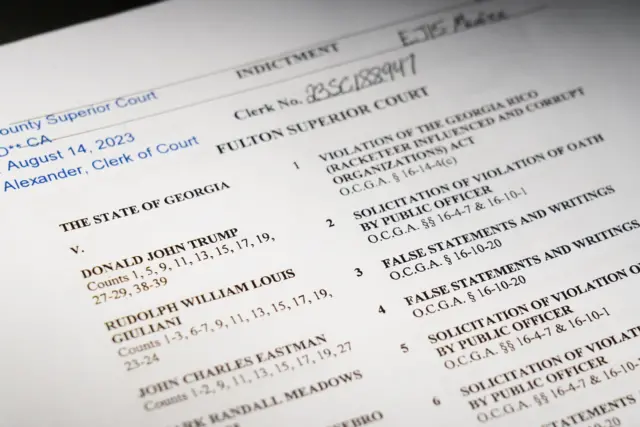 INDICTMENT
Clerk No. 23SC188947
FULTON SUPERIOR COURT
ounty Superior Court
CA
August 14, 2023
Alexander, Clerk of Court
THE STATE OF GEORGIA
V.
DONALD JOHN TRUMP
Counts 1, 5, 9, 11, 13, 15, 17, 19,
27-29, 38-39
RUDOLPH WILLIAM LOUIS
GIULIANI
Counts 1-3, 6-7, 9, 11, 13, 15, 17, 19,
23-24
JOHN CHARLES EASTMAN
Counts 1-2, 9, 11, 13, 15, 17, 19, 27
ARK RANDALL MEADOWS
EBRO
1 VIOLATION OF THE GEORGIA RICO
(RACKETEER INFLUENCED AND CORRUPT
ORGANIZATIONS) ACT
O.C.G.A. § 16-14-4(c)
2 SOLICITATION OF VIOLATION OF OATH
BY PUBLIC OFFICER
O.C.G.A. §§ 16-4-7 & 16-10-1
3 FALSE STATEMENTS AND WRITINGS
O.C.G.A. § 16-10-20
4 FALSE STATEMENTS AND WRITINGS
O.C.G.A. § 16-10-20
5 SOLICITATION OF VIOLATION O
BY PUBLIC OFFICER
O.C.G.A. §§ 16-4-7 & 16-10-1
6 SOLICITATION OF VIOLAT
BY PUBLIC OFFICER
O.C.G.A. §§ 16-4-7 & 16-10-
FALSE STATEMENTS